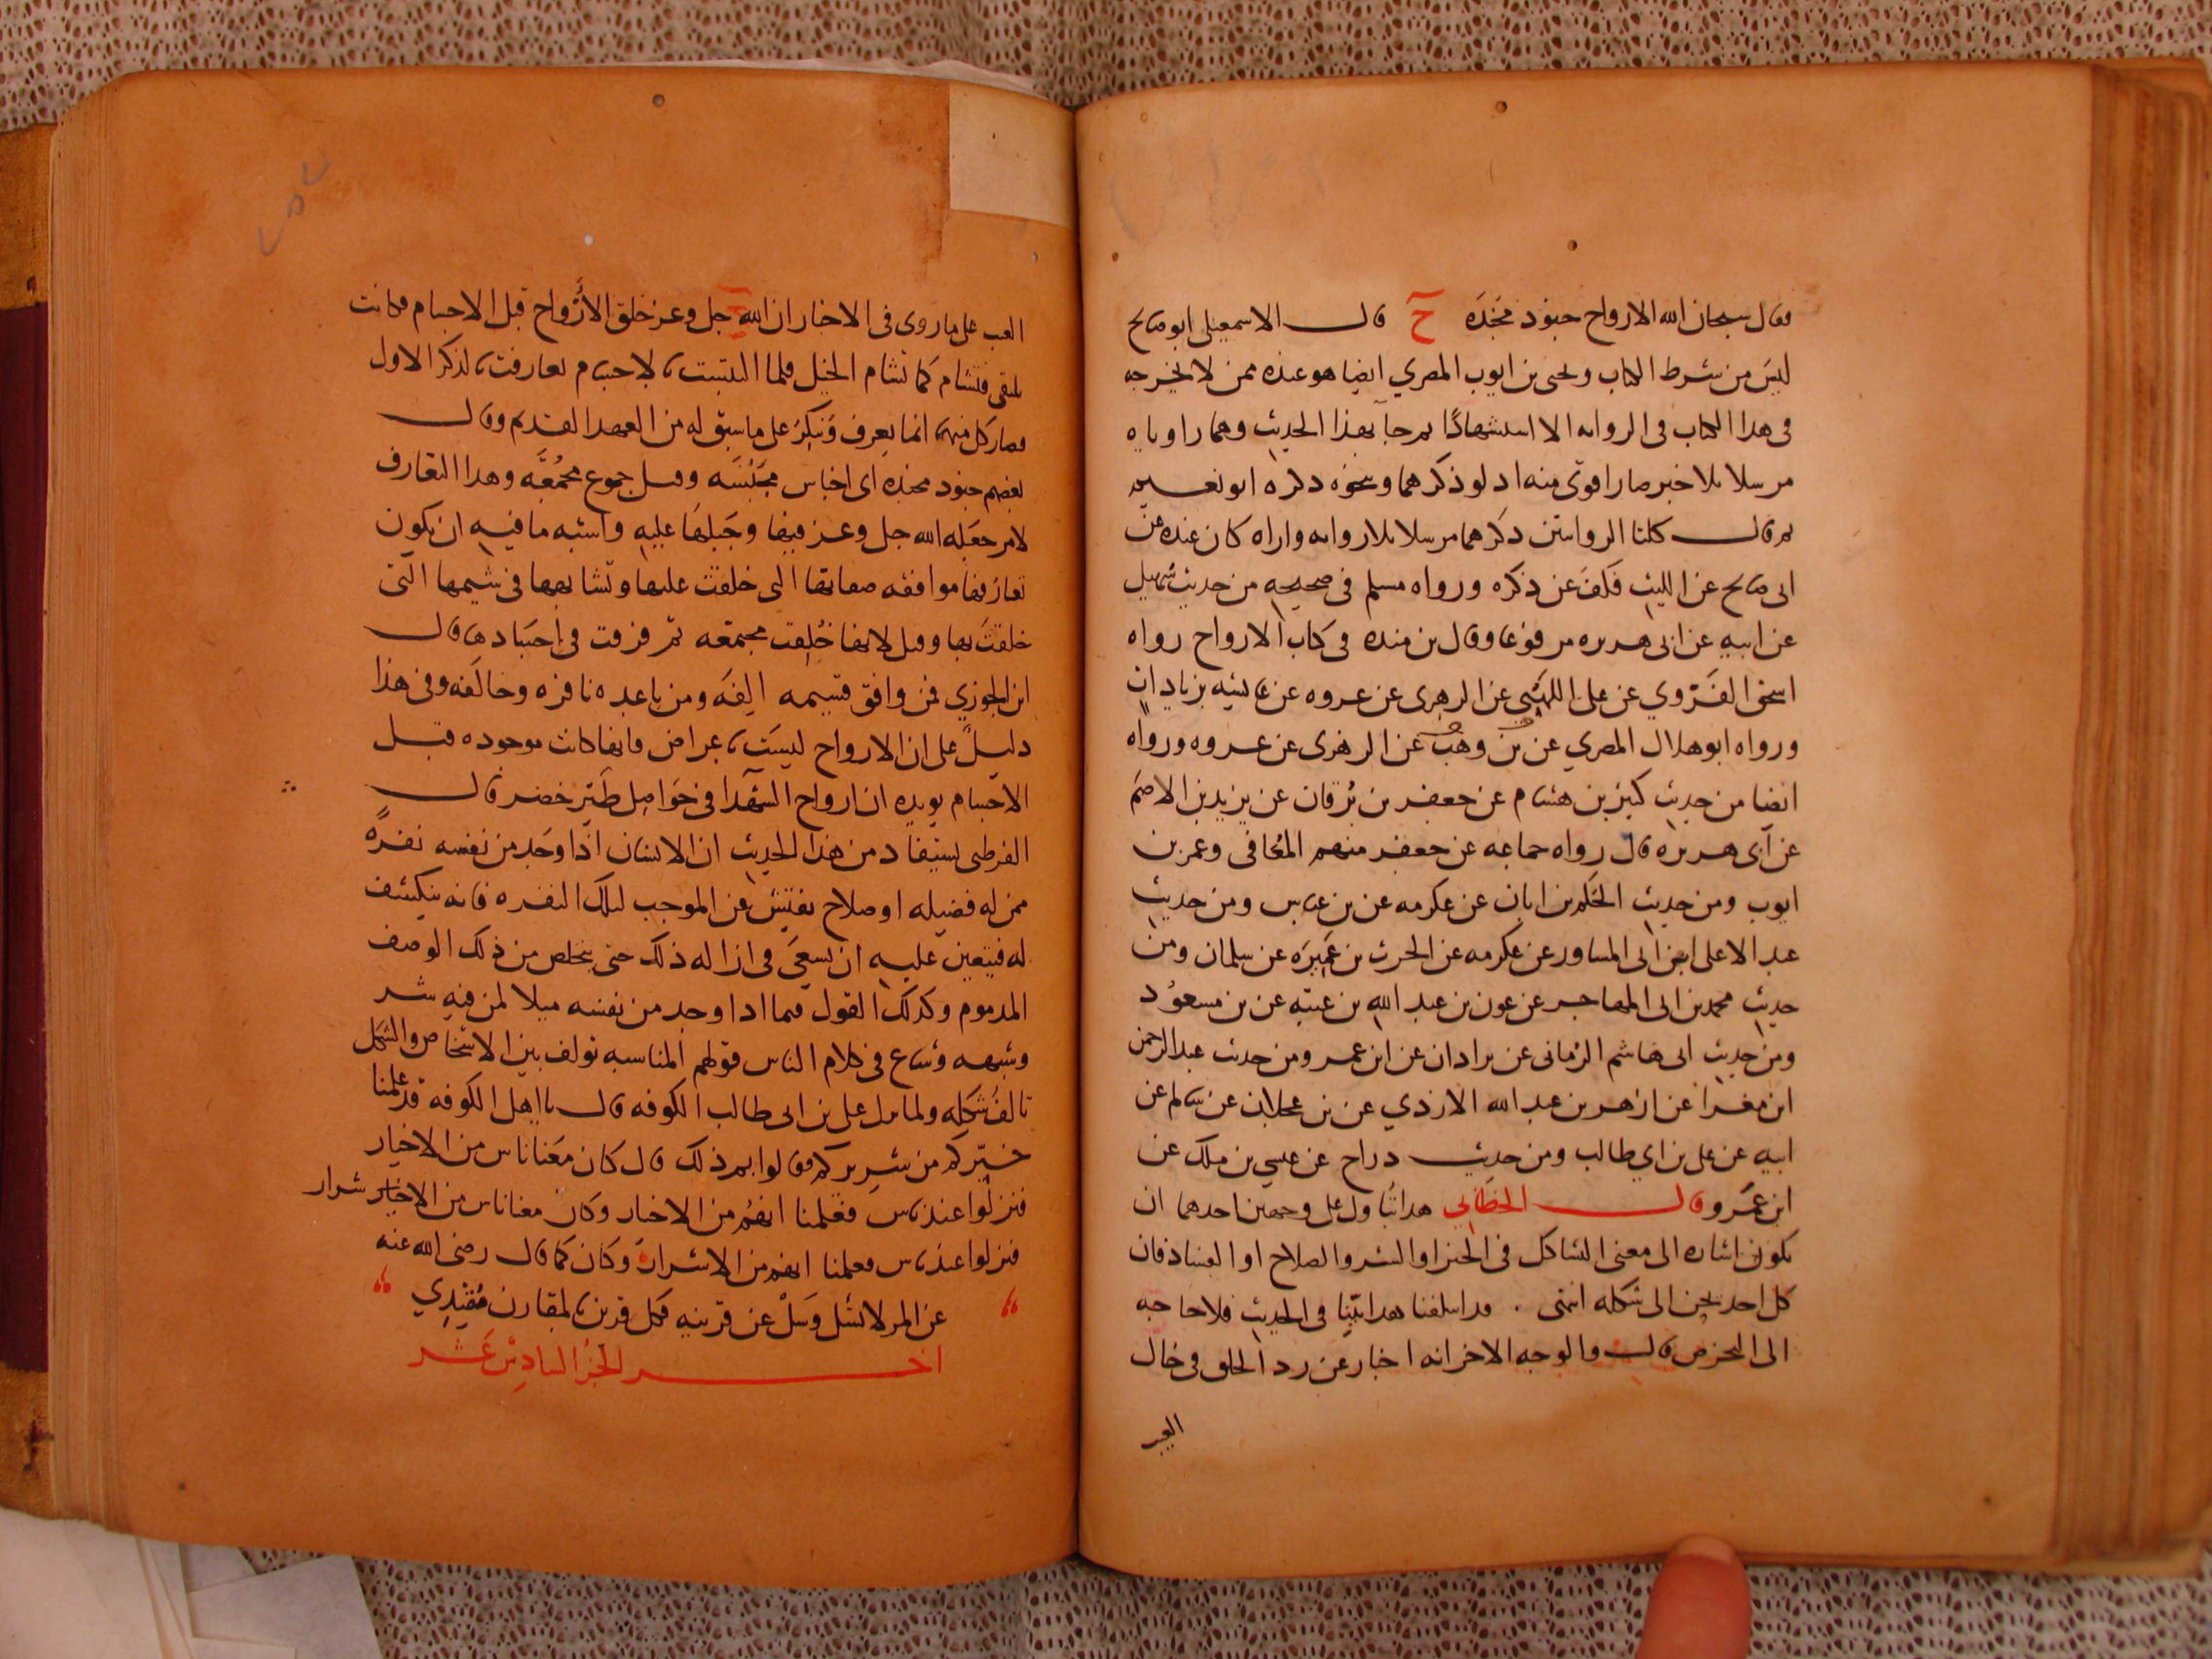 فقال سبحان الله الارواح جنود مجنده ح قال الاسمعيلي ابو صالح
ليس من شرط الكتاب ويحيى بن ايوب المصري ايضا هو عنده ممن لا يخرجه
في هذا الكتاب في الروايه الا استشهادًا خرجا بهذا الحديث وهما راوياه
مرسلا بلا خبر صار اقوى منه اذ لو ذكرهما ونحوه ذكره ابو نعيم
ثم قال كلتا الروايتين ذكرهما مرسلا بلا روايه واراه كان عنده عن
ابي صالح عن الليث فكف عن ذكره ورواه مسلم في صحيحه من حديث سهيل
عن ابيه عن ابي هريره مرفوعا وقال بن منده في كتاب الارواح رواه
اسحق الفروي عن علي اللهبي عن الزهرى عن عروه عن عائشه بزيادات
ورواه ابو هلال المصري عن بن وهب عن الزهرى عن عروه ورواه
ايضا من حديث كثير بن هشام عن جعفر بن برقان عن يزيد بن الاصم
عن ابى هريره قال رواه جماعه عن جعفر منهم المعافى وعمر بن
ايوب ومن حديث الحكم بن ابان عن عكرمه عن بن عباس ومن حديث
عبد الاعلى ابن ابي المساور عن عكرمه عن الحرث بن عميره عن سلمان ومن
حديث محمد بن ابي المهاجر عن عون بن عبد الله بن عتبه عن بن مسعود
ومن حديث ابي هاشم الرماني عن زاذان عن ابن عمر ومن حديث عبد الرحمن
ابن مغرا عن ازهر بن عبد الله الازدي عن بن عجلان عن سالم عن
ابيه عن علي بن ابي طالب ومن حديث دراج عن عيسي بن ملك عن
ابن عمرو قال الخطابي هذا يتاول على وجهين احدهما ان
يكون اشاره الى معنى التشاكل في الخير او الشر والصلاح او الفساد فان
كل احد يحن الى شكله انتهى . قد اسلفنا هذا ايضا في الحديث فلا حاجه
الى التخرص قال والوجه الاخر انه اخبار عن بدء الخلق في حال
الغيب
الغيب على ما روى في الاخبار ان الله جل وعز خلق الأرواح قبل الاجسام فكانت
تلتقي فتشام كما تشام الخيل فلما التبست بالاجسام تعارفت بالذكر الاول
فصار كل منها انما يعرف وينكر على ما سبق له من العهد القديم وقال
بعضهم جنود مجنده اى اجناس مجنسه وقيل جموع مجمعه وهذا التعارف
لامر جعله الله جل وعز فيها وجبلها عليه واشبه ما فيه ان يكون
تعارفها موافقه صفاتها التي خلقت عليها وتشابهها في شيمها التي
خلقت بها وقيل لانها خلقت مجتمعه ثم فرقت في اجسادها قال
ابن الجوزي فمن وافق قسيمه الفه ومن باعده نافره وخالفه وفي هذا
دليل على ان الارواح ليست باعراض وانها كانت موجوده قبل
الاجسام يويده ان ارواح الشهدا في حواصل طير خضر قال
القرطبي يستفاد من هذا الحديث ان الانسان اذا وجد من نفسه نفرةً
ممن له فضيله او صلاح يفتش عن الموجب لتلك النفره فانه ينكشف
له فيتعين عليه ان يسعى في ازاله ذلك حتى يتخلص من ذلك الوصف
المذموم وكذلك القول فيما اذا وجد من نفسه ميلا لمن فيه شر
وشبهه وشاع في كلام الناس قولهم المناسبه تولف بين الاشخاص والشكل
يالف شكله ولما نزل علي بن ابي طالب الكوفه قال يا اهل الكوفة قد علمنا
خيركم من شريركم فقالوا بم ذلك قال كان معنا ناس من الاخيار
فنزلوا عند ناس فعلمنا انهم من الاخيار وكان معنا ناس من الاشرار
فنزلوا عند ناس فعلمنا انهم من الاشرار وكان كما قال رضى الله عنه
عن المرء لا تسل وسل عن قرينه فكل قرين بالمقارن مقتدي
اخر الجزء السادس عشر